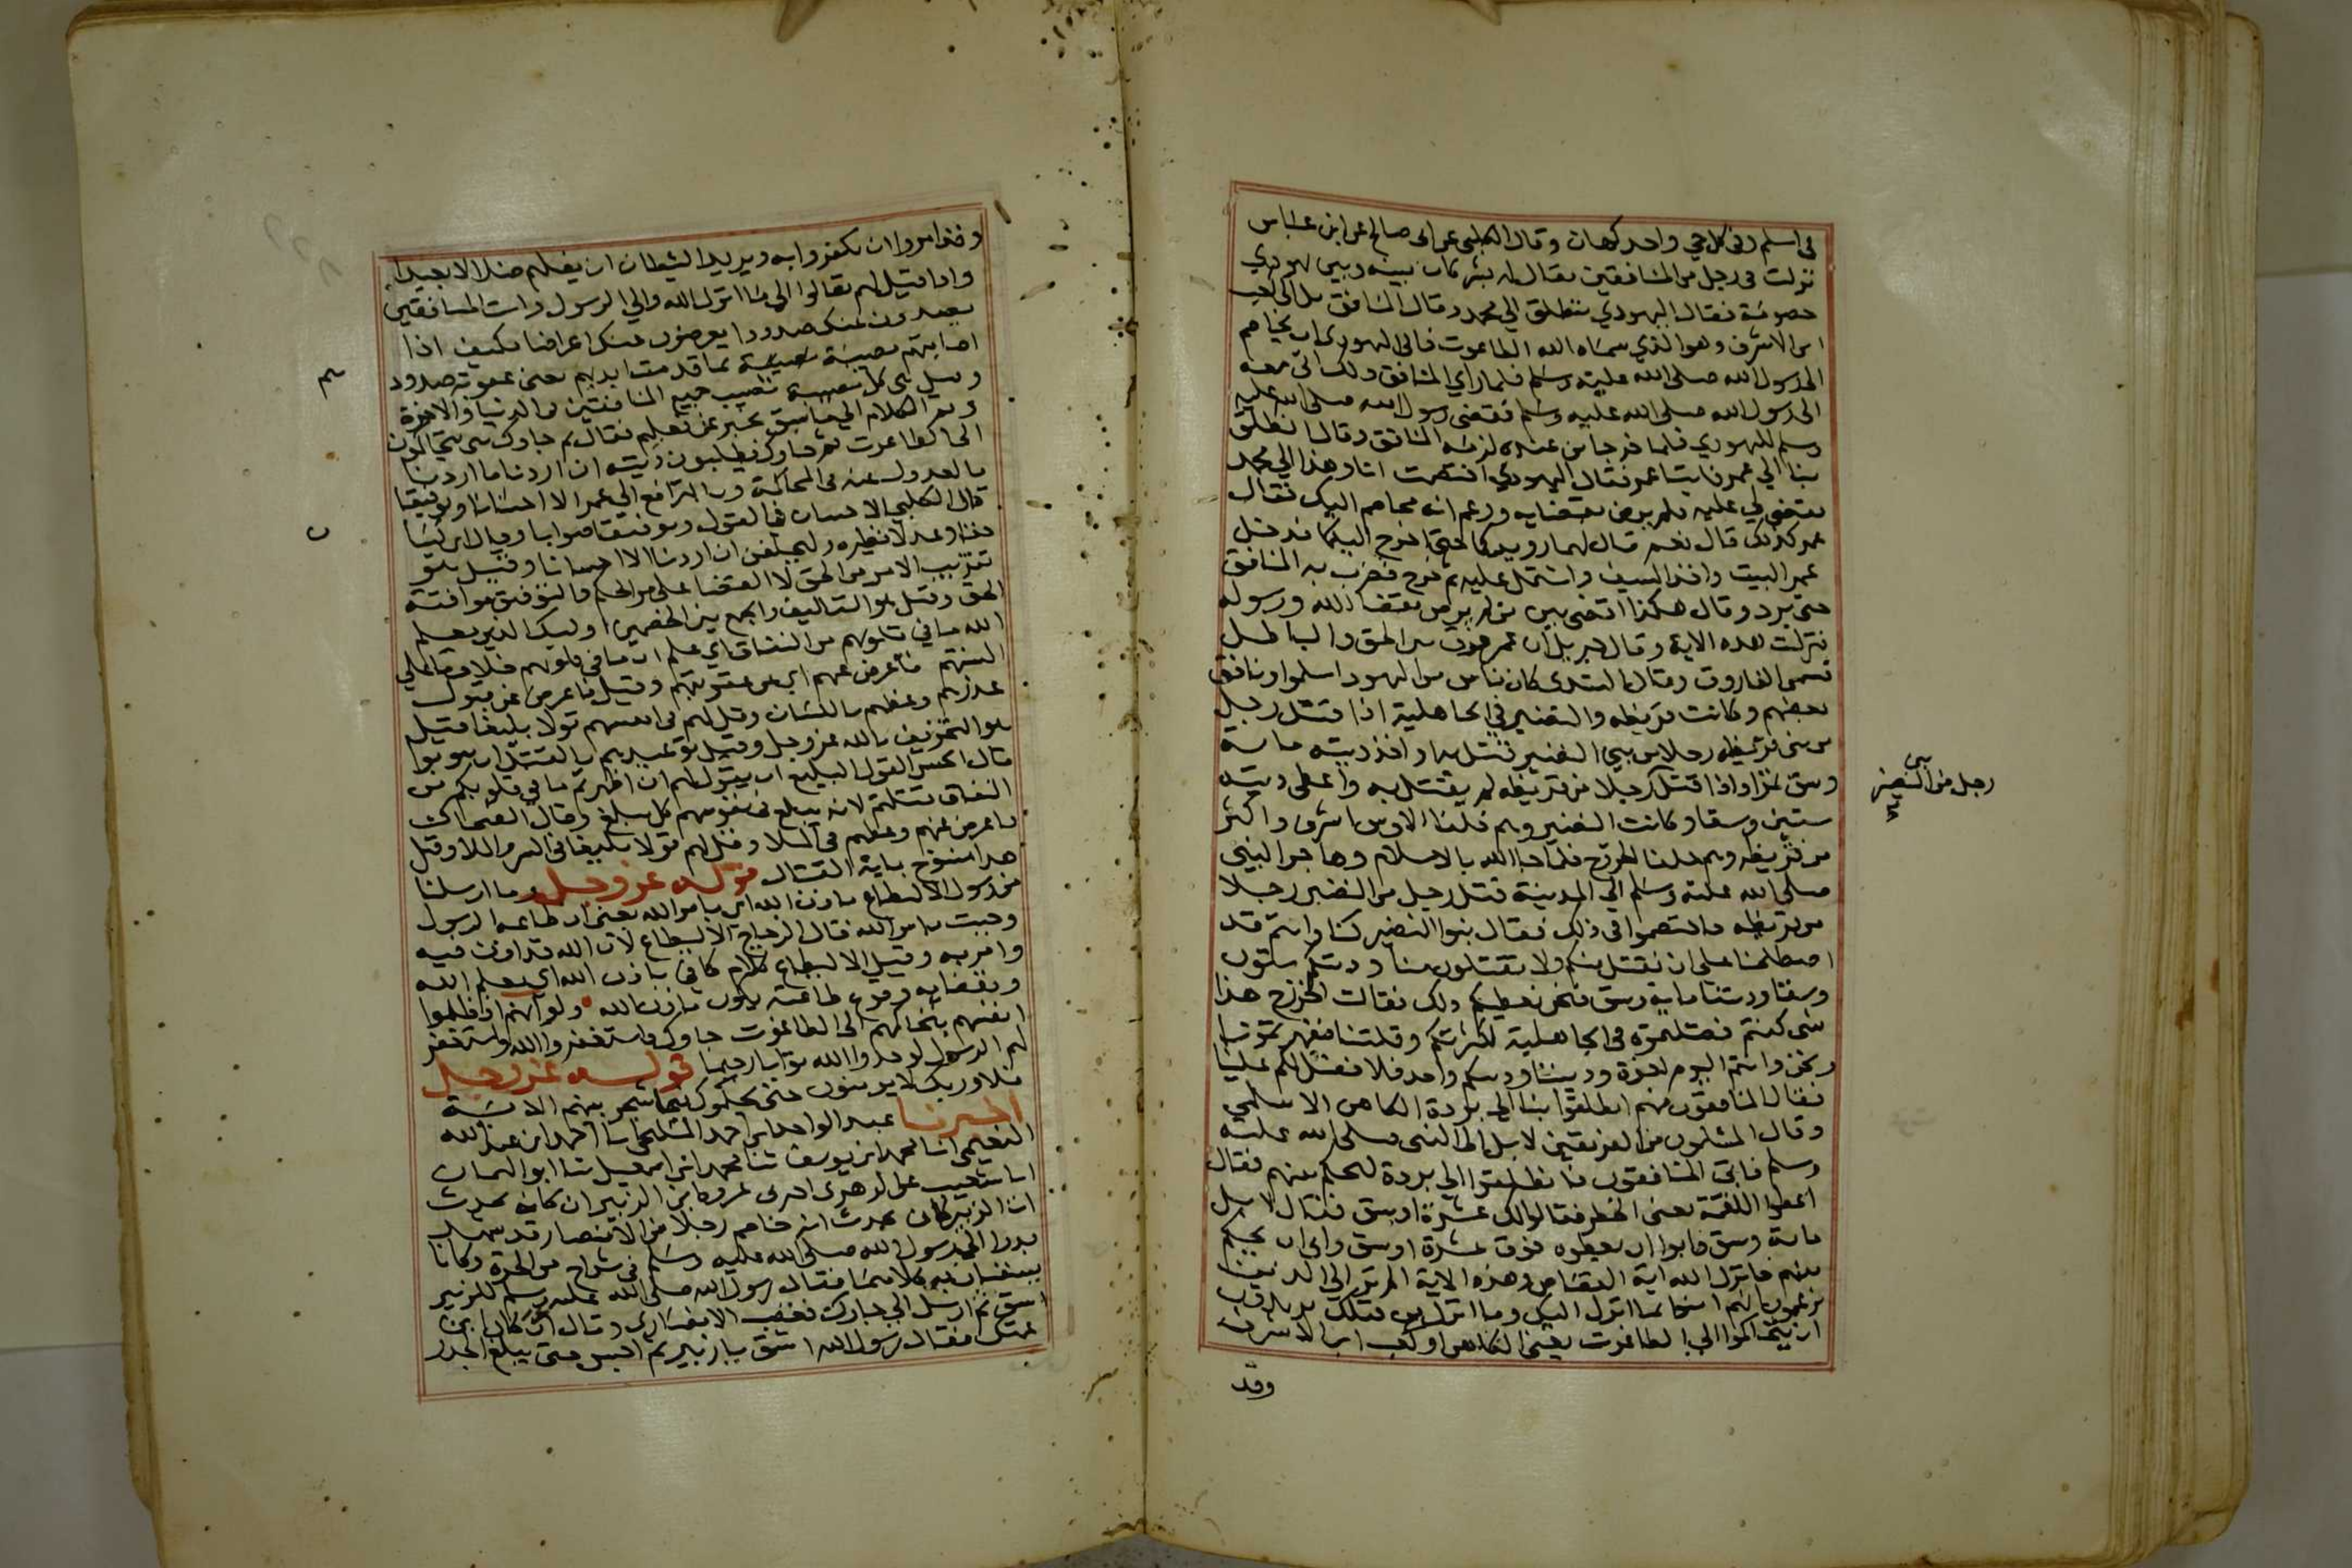 في اسلم وفي كل حي واحد كهان وقال الكلبي عن ابي صالح عن ابن عباس
نزلت في رجل من المنافقين يقال له بشر كان بينه وبين يهودي
خصومة فقال اليهودي ننطلق الي محمد وقال المنافق بل الي كعب
ابن الاشرف وهو الذي سماه الله الطاغوت فابى اليهودي ان يخاصم
الى رسول الله صلى الله عليه وسلم فلما راي المنافق ذلك اتى معه
الى رسول الله صلى الله عليه وسلم فقضى رسول الله صلى الله عليه
وسلم لليهودي فلما خرجا من عنده لزمه المنافق وقال انطلق
بنا الي عمر فاتيا عمر فقال اليهودي اختصمت انا وهذا الي محمد
فقضى لي عليه فلم يرض بقضايه وزعم انه مخاصم اليك فقال
عمر كذلك قال نعم قال لهما رويدكما حتى اخرج اليكما فدخل
عمر البيت واخذ السيف واشتمل عليه ثم خرج فضرب به المنافق
حتى برد وقال هكذا اقضي بين من لم يرض بقضاء الله ورسوله
فنزلت هذه الاية وقال جبريل ان عمر فرق بين الحق والباطل
فسمي الفاروق وقال السدى كان ناس من اليهود اسلموا ونافق
بعضهم وكانت قريظه والنضير في الجاهلية اذا قتل رجل
من بني قريظه رجلا من بني النضير قتل به او اخذ ديته ماية
وسق تمرا واذا قتل رجلا من قريظه لم يقتل به واعطى ديته
رجل من بني النضير
ستين وسقا وكانت النضير وهم حلفا الاوس اشرف واكثر
من قريظه وهم حلفا الخزرج فلما جا الله بالاسلام وهاجر النبي
صلى الله عليه وسلم الي المدينة قتل رجل من النضير رجلا
من قريظه فاختصموا في ذلك فقال بنوا النضير كنا وانتم قد
اصطلحنا على ان نقتل منكم ولا تقتلون منا وديتكم ستون
وسقا وديتنا ماية وسق فنحن نعطيكم ذلك فقالت الخزرج هذا
شى كنتم فعلتموه في الجاهلية لكثرتكم وقلتنا فقهرتمونا
ونحن وانتم اليوم اخوة وديننا ودينكم واحد فلا فضل لكم علينا
فقال المنافقون منهم انطلقوا بنا الى ابو بردة الكاهن الاسلمي
وقال المسلمون من الفريقين لا بل الى النبي صلى الله عليه
وسلم فابى المنافقون فانطلقوا الى بردة ليحكم بينهم فقال
اعظموا اللقمة يعني الخطر فقالوا لك عشرة اوسق فقال لا بل
ماية وسق فابوا ان يعطوه فوق عشرة اوسق وابى ان يحكم
بينهم فانزل الله اية القصاص وهذه الاية الم تر الى الذين
يزعمون انهم امنوا بما انزل اليك وما انزل من قبلك يريدون
ان يتحاكموا الى الطاغوت يعني الكاهن او كعب ابن الاشرف
وقد
وقد امروا ان يكفروا به ويريد الشيطان ان يضلهم ضلالا بعيدا
واذا قيل لهم تعالوا الى ما انزل الله والي الرسول رايت المنافقين
يصدون عنك صدودا يعرضون عنك اعراضا فكيف اذا
اصابتهم مصيبة بما قدمت ايديهم يعني عقوبة صدودهم
وقيل هي كل مصيبة تصيب جميع المنافقين في الدنيا والاخرة
وتم الكلام الى ما سبق يخبر عن فعلهم فقال ثم جاوك يعني يتحاكمون
الى الطاغوت ثم جاوك يطلبون ديته ان اردنا ما اردنا
بالعدول عنه في المحاكمة وبالترافع الى عمر الا احسانا وتوفيقا
قال الكلبي الا احسانا في القول وتوفيقا صوابا وقال ابن كيسان
حقا وعدلا نظيره وليحلفن ان اردنا الا احسانا وقيل هو
تقريب الامر من الحق لا القضا على مر الحكم والتوفيق موافقة
الحق وقيل هو التاليف والجمع بين الخصمين اوليك الذين يعلم
الله ما في قلوبهم من النفاق اي علم ان ما في قلوبهم خلاف ما في
السنتهم فاعرض عنهم اي عن عقوبتهم وقيل فاعرض عن قبول
عذرهم وعظهم باللسان وقل لهم في انفسهم قولا بليغا قيل
هو التخويف بالله عز وجل وقيل توعدهم بالقتل ان لم يتوبوا
قال الحسن القول البليغ ان يقول لهم ان اظهرتم ما في قلوبكم من
النفاق قتلتم لانه يبلغ في نفوسهم كل مبلغ وقال الضحاك
فاعرض عنهم وعظهم في الملا وقل لهم قولا بليغا في السر والخلا وقيل
هذا منسوخ باية القتال قوله عز وجل وما ارسلنا
من رسول الا ليطاع باذن الله اي بامر الله يعني ان طاعة الرسول
وجبت بامر الله قال الزجاج الا ليطاع لان الله قد اذن فيه
وامر به وقيل الا ليطاع كلام كاف باذن الله اي بعلم الله
وبقضايه وقوع طاعته يكون باذن الله ولو انهم اذ ظلموا
انفسهم بتحاكمهم الى الطاغوت جاوك فاستغفروا الله واستغفر
لهم الرسول لوجدوا الله توابا رحيما قوله عز وجل
فلا وربك لا يومنون حتى يحكموك فيما شجر بينهم الاية
اخبرنا عبد الواحد ابن احمد المليحي انا احمد ابن عبد الله
النعيمي انا محمد ابن يوسف ثنا محمد ابن اسمعيل ثنا ابو اليمان
انا شعيب عن الزهرى اخبرني عروة ابن الزبير ان كان يحدث
ان الزبير كان يحدث انه خاصم رجلا من الانصار قد شهد
بدرا الى رسول الله صلى الله عليه وسلم في شراج من الحرة وكانا
يسقيان به كلاهما فقال رسول الله صلى الله عليه وسلم للزبير
اسق ثم ارسل الى جارك فغضب الانصاري وقال ان كان ابن
عمتك فقال رسول الله اسق يا زبير ثم احبس حتى يبلغ الجدر